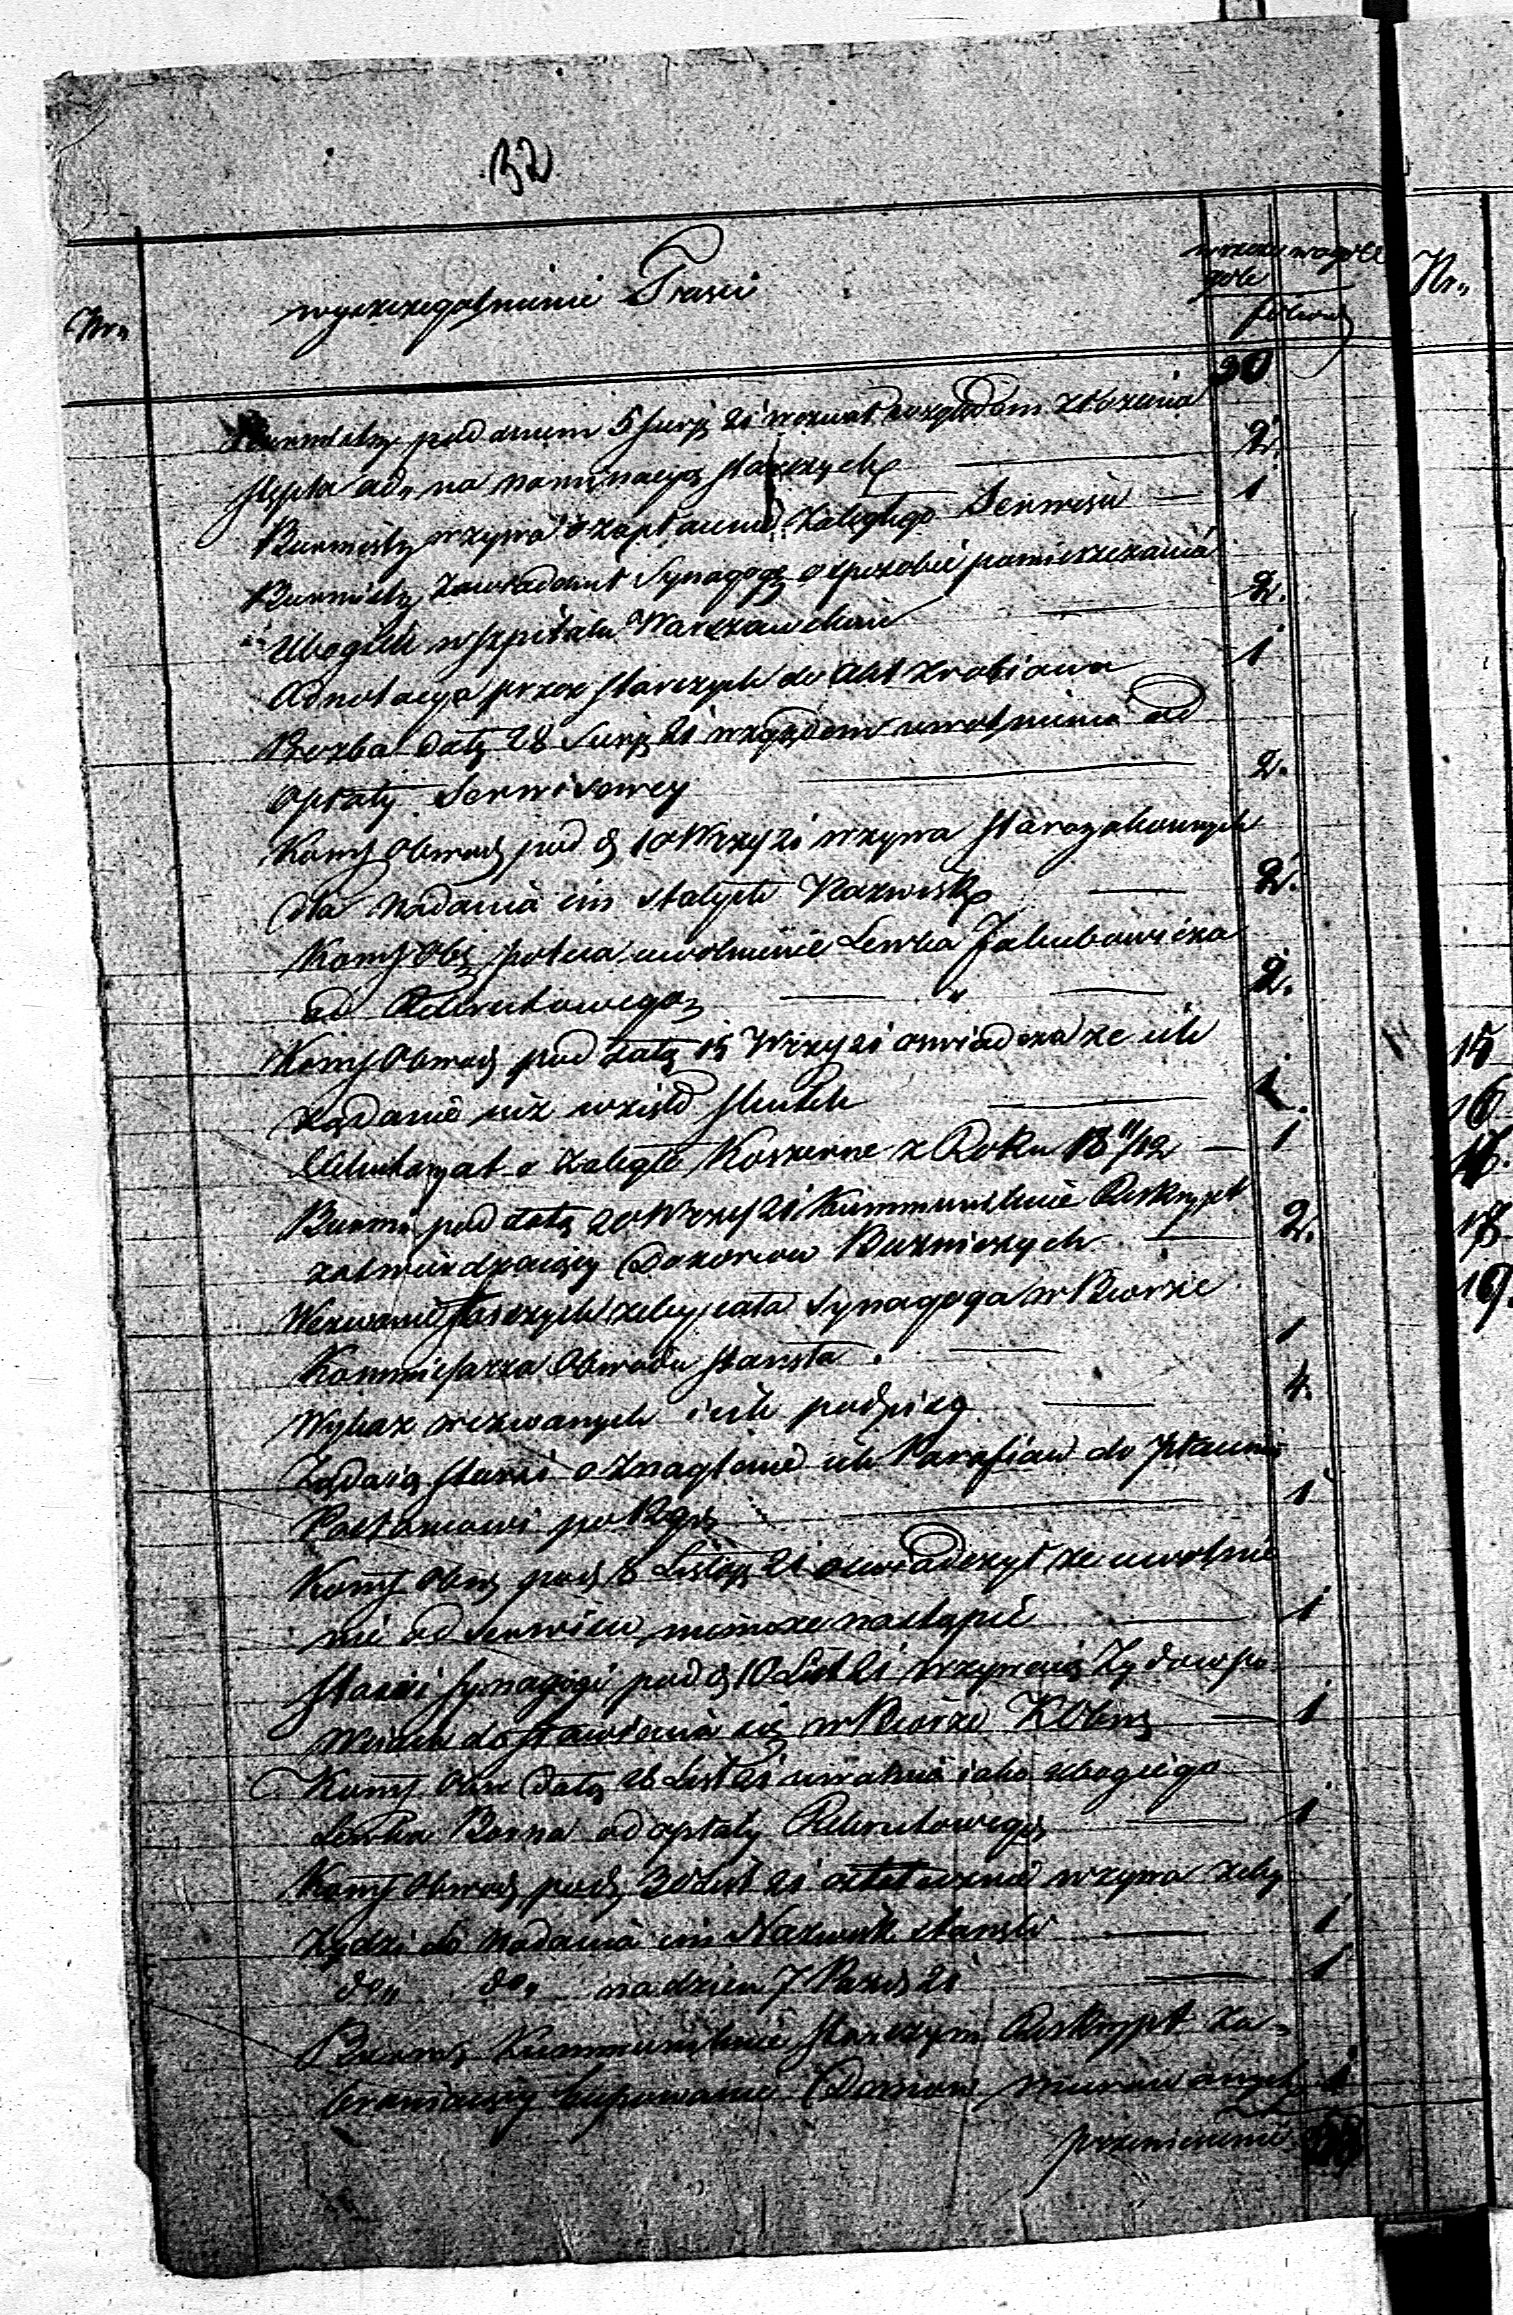 32
Nr. wyszczegolnienie Tresci wszcze wogóle Nr.
gole
foliow
30
Burmistrz pod dnem 5 Sierp 21 wezwał względem złożenia
stępla adn na nominacyą starszych — 2.
Burmistrz wzywa o zapłacenie Zaległego Serwisu — 1
Burmistrz Zawiadomił Synagogę o sposobie pomieszczania
Ubogich w szpitalu Warszawskim — 2.
Adnotacya przez starszych do Akt zrobiona — 1
Prozba datą 28 Sierp 21 względem uwolnienia od
Opłaty Serwisowey — 2.
Kom Obwod pod d 10 Wrzes 21 wzywa starozakonnych
dla Nadania im stałych Nazwisk — 2.
Kom Obw poleca uwolnienie Lewka Jakubowicza
od Rekrutowego — " — 2.
Kom Obwod pod datą 15 Wrzes 21 oswiadcza ze ich
żądanie iuż wzieło skutek — 1.
Delikwentarzat o Zaległe Koszerne z Roku 18 11/12 — 1
Burm pod datą 20 Wrzes 21 Kommunikuie Reskrypt
zatwierdzaiący Dozorcow Bużniczych — 2.
Wezwanie starszych zeby cała Synagoga w Biorze
Kommissarza Obwodu staneła. — 1
Wykaz wezwanych i ich podpisy — 4.
Żądaią starsi o znaglenie ich Parafian do płacenia
po Rgr — 1
Kom Obw pod 8 Listop 21 oswiadczył ze uwolnie
nie od Serwisu niemoze nastąpić — 1
Starsi Synagogi pod d 10 List 21 wzywaią Żydow po
Wsiach do stawienia się w Biorze K Obw — 1
Kom Obw datą 28 List 21 uwalnia iako ubogiego
Lewka Borna od opłaty Rekrutowego — 1
Kom Obwod pod 30 List 21 ostatecznie wzywa zeby
Żydzi do Nadania im Nazwisk staneli — 1
do" do" na dzien 7 21 — 1
Burm Kommunikuie starszym Reskrypt za-
braniaiący kupowanie Domow murowanych 1
przeniesienie
15
16
17.
18
19.